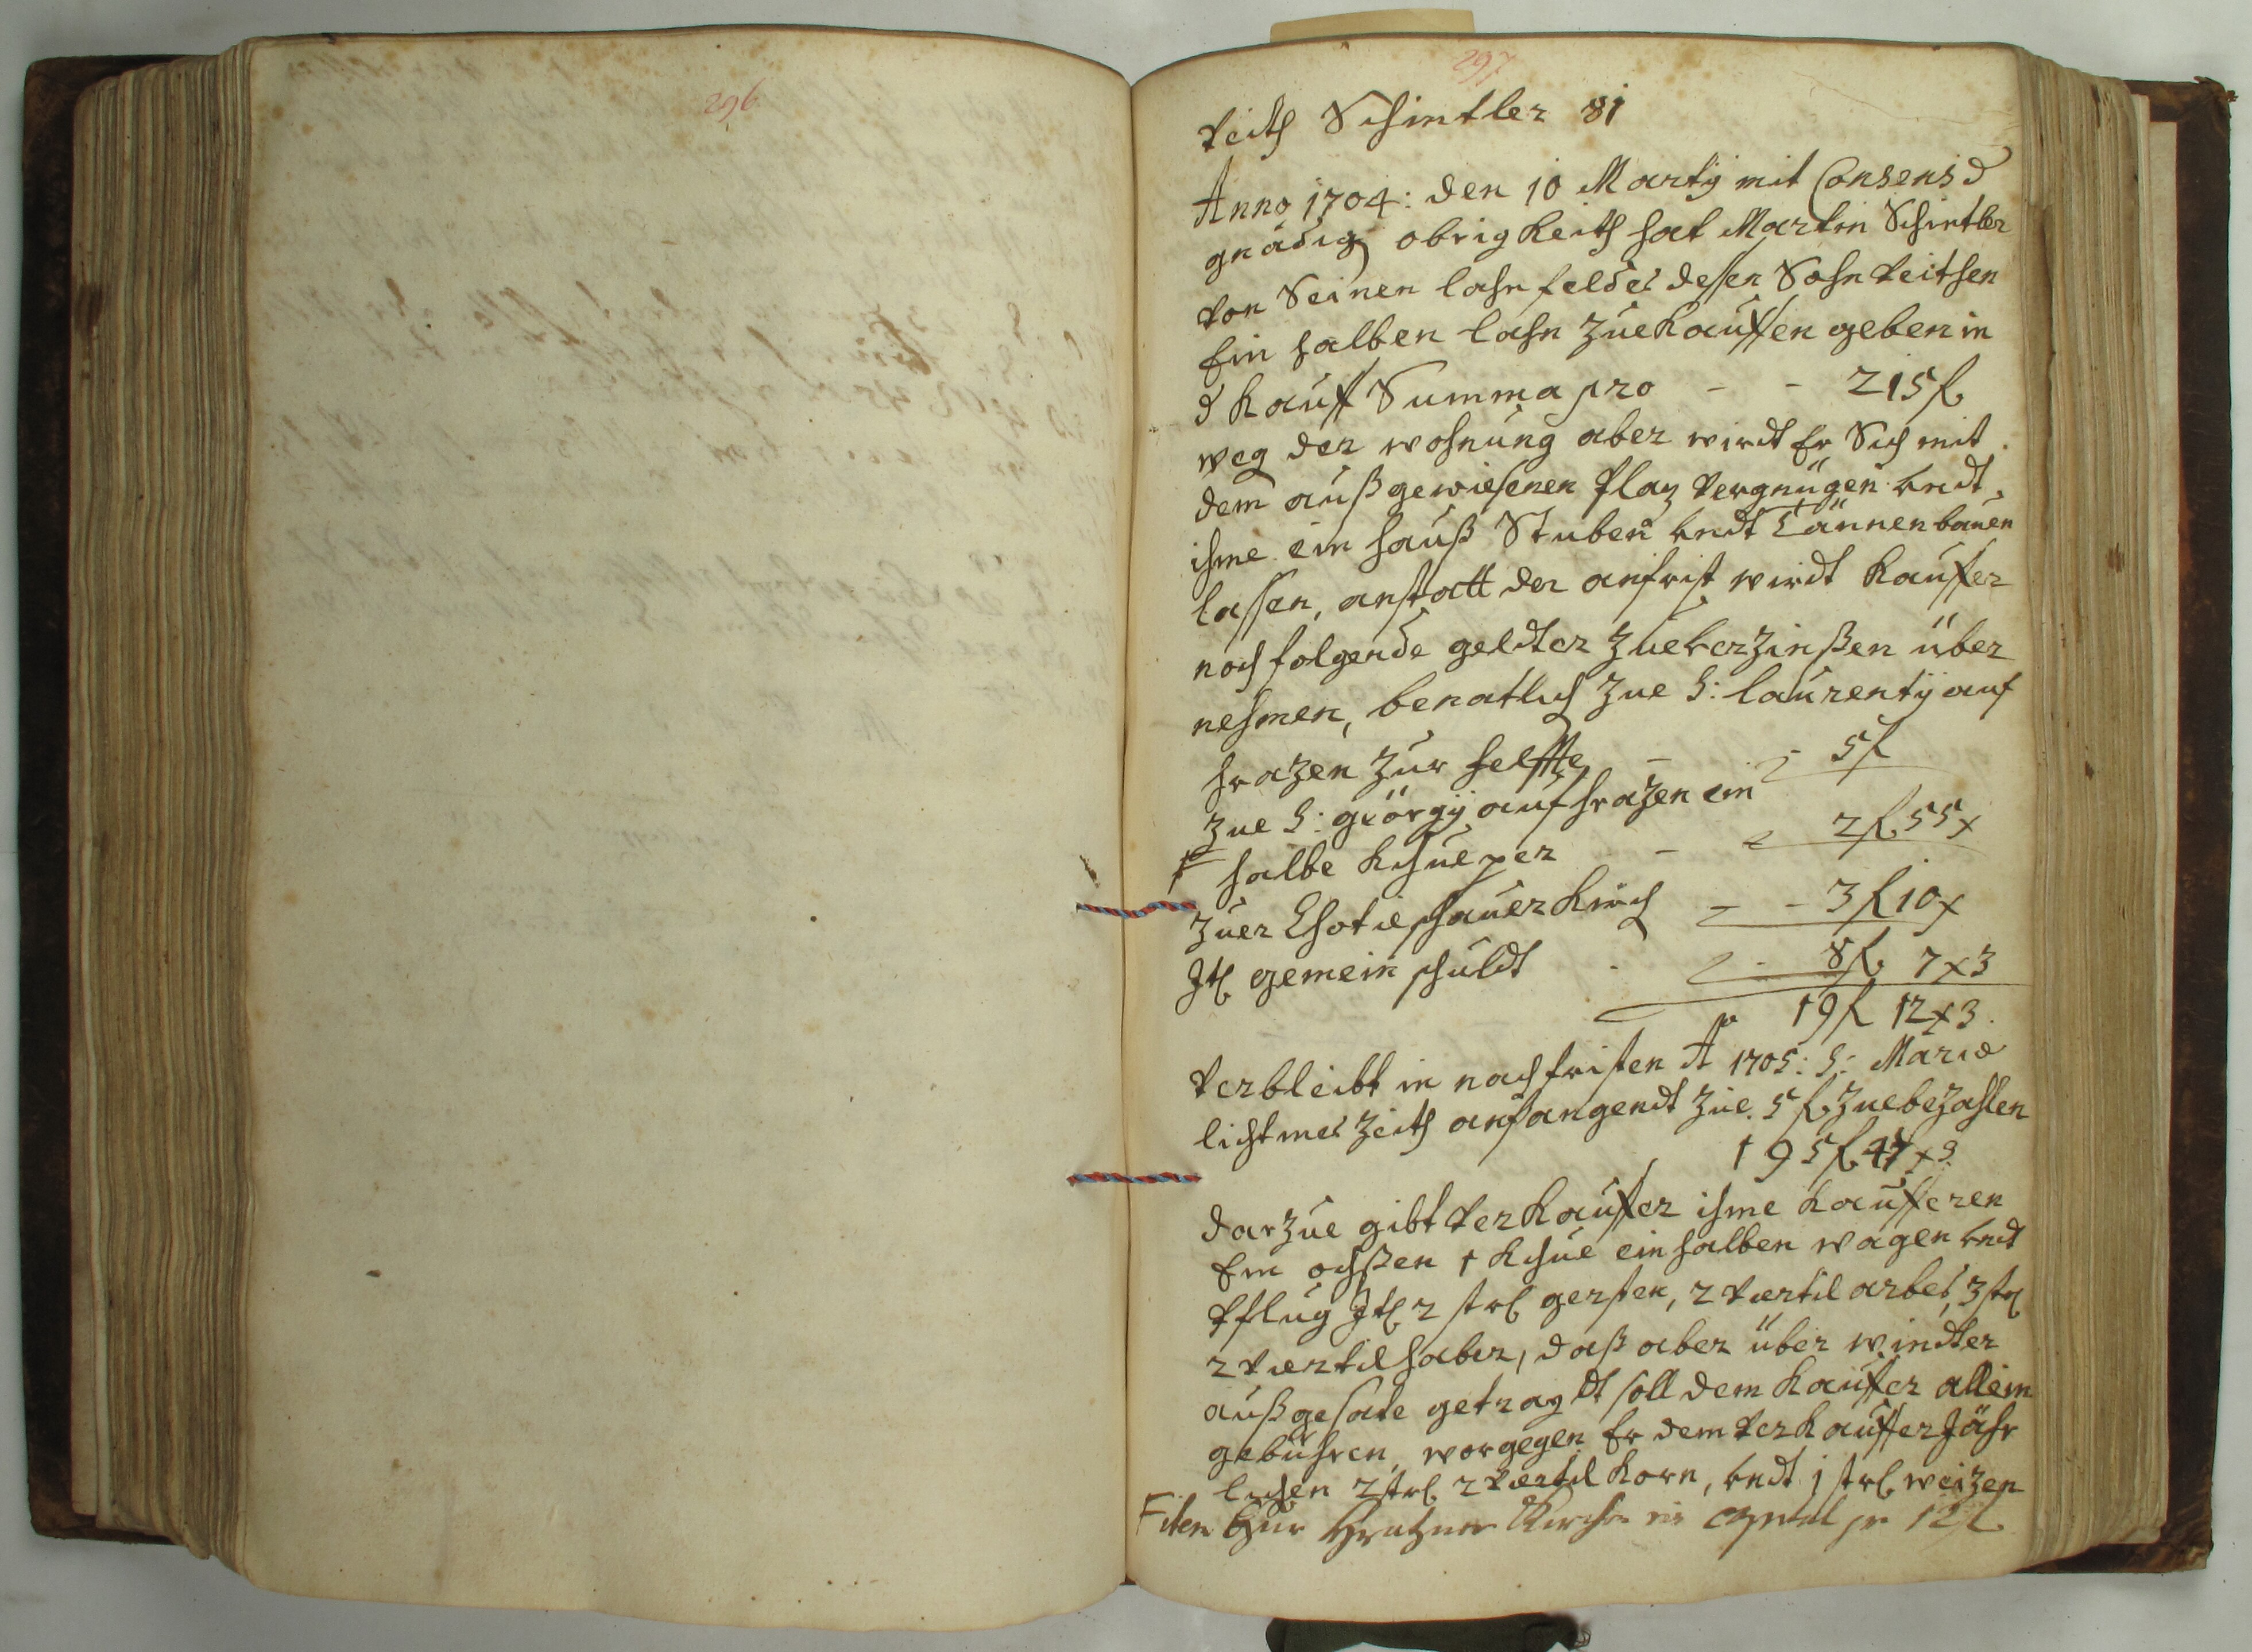 296
297
Veith Schintler 81
Anno 1704: den 10 Martij mit Consens d
gnädig obrigkeith hat Martin Schintler
von Seinen lahn feldes dessen Sohn Veithen
Ein halben lahn zue kauffen geben in
d kauff Summa pro - - 215 f
weg der wohnung aber wirdt Er Sich mit
dem außgewiesenen Plaz vergnügen vndt
ihme ein hauß Stuben vndt Tännen bauen
lassen, anstatt der anfrist wirdt kauffer
noch folgende geldter zueverzinßen über
nehmen, benantlich zue S: laurentij auf
hrazen zur helffte - - 5 f
zue S: giörgij auf hrazen ein
halbe khue per - 2 f 55 x
zuer Chotieschauer kirch - - 3 f 10 x
Itl gemein schuldt - 8 f 7 x 3
19 f 12 x 3
Verbleibt in nachfristen Ao 1705: S: Mariæ
lichtmes zeith anfangendt zue 5 f zuebezahlen
195 f 47 x 3
darzue gibt Verkauffer ihme kaufferen
Ein ochßen 1 khue ein halben wagen vndt
Pflug Itl 2 strl gersten, 2 viertil arbes, 3 strl
2 viertil haber, daß aber über windter
außgesäte getraydt soll dem kauffer allein
gebühren, worgegen Er dem Verkauffer Jähr
lichen 2 strl 2 viertil korn, vndt 1 strl weizen
F iten Zur Hratzner Kirchen ein capital pr 12 f